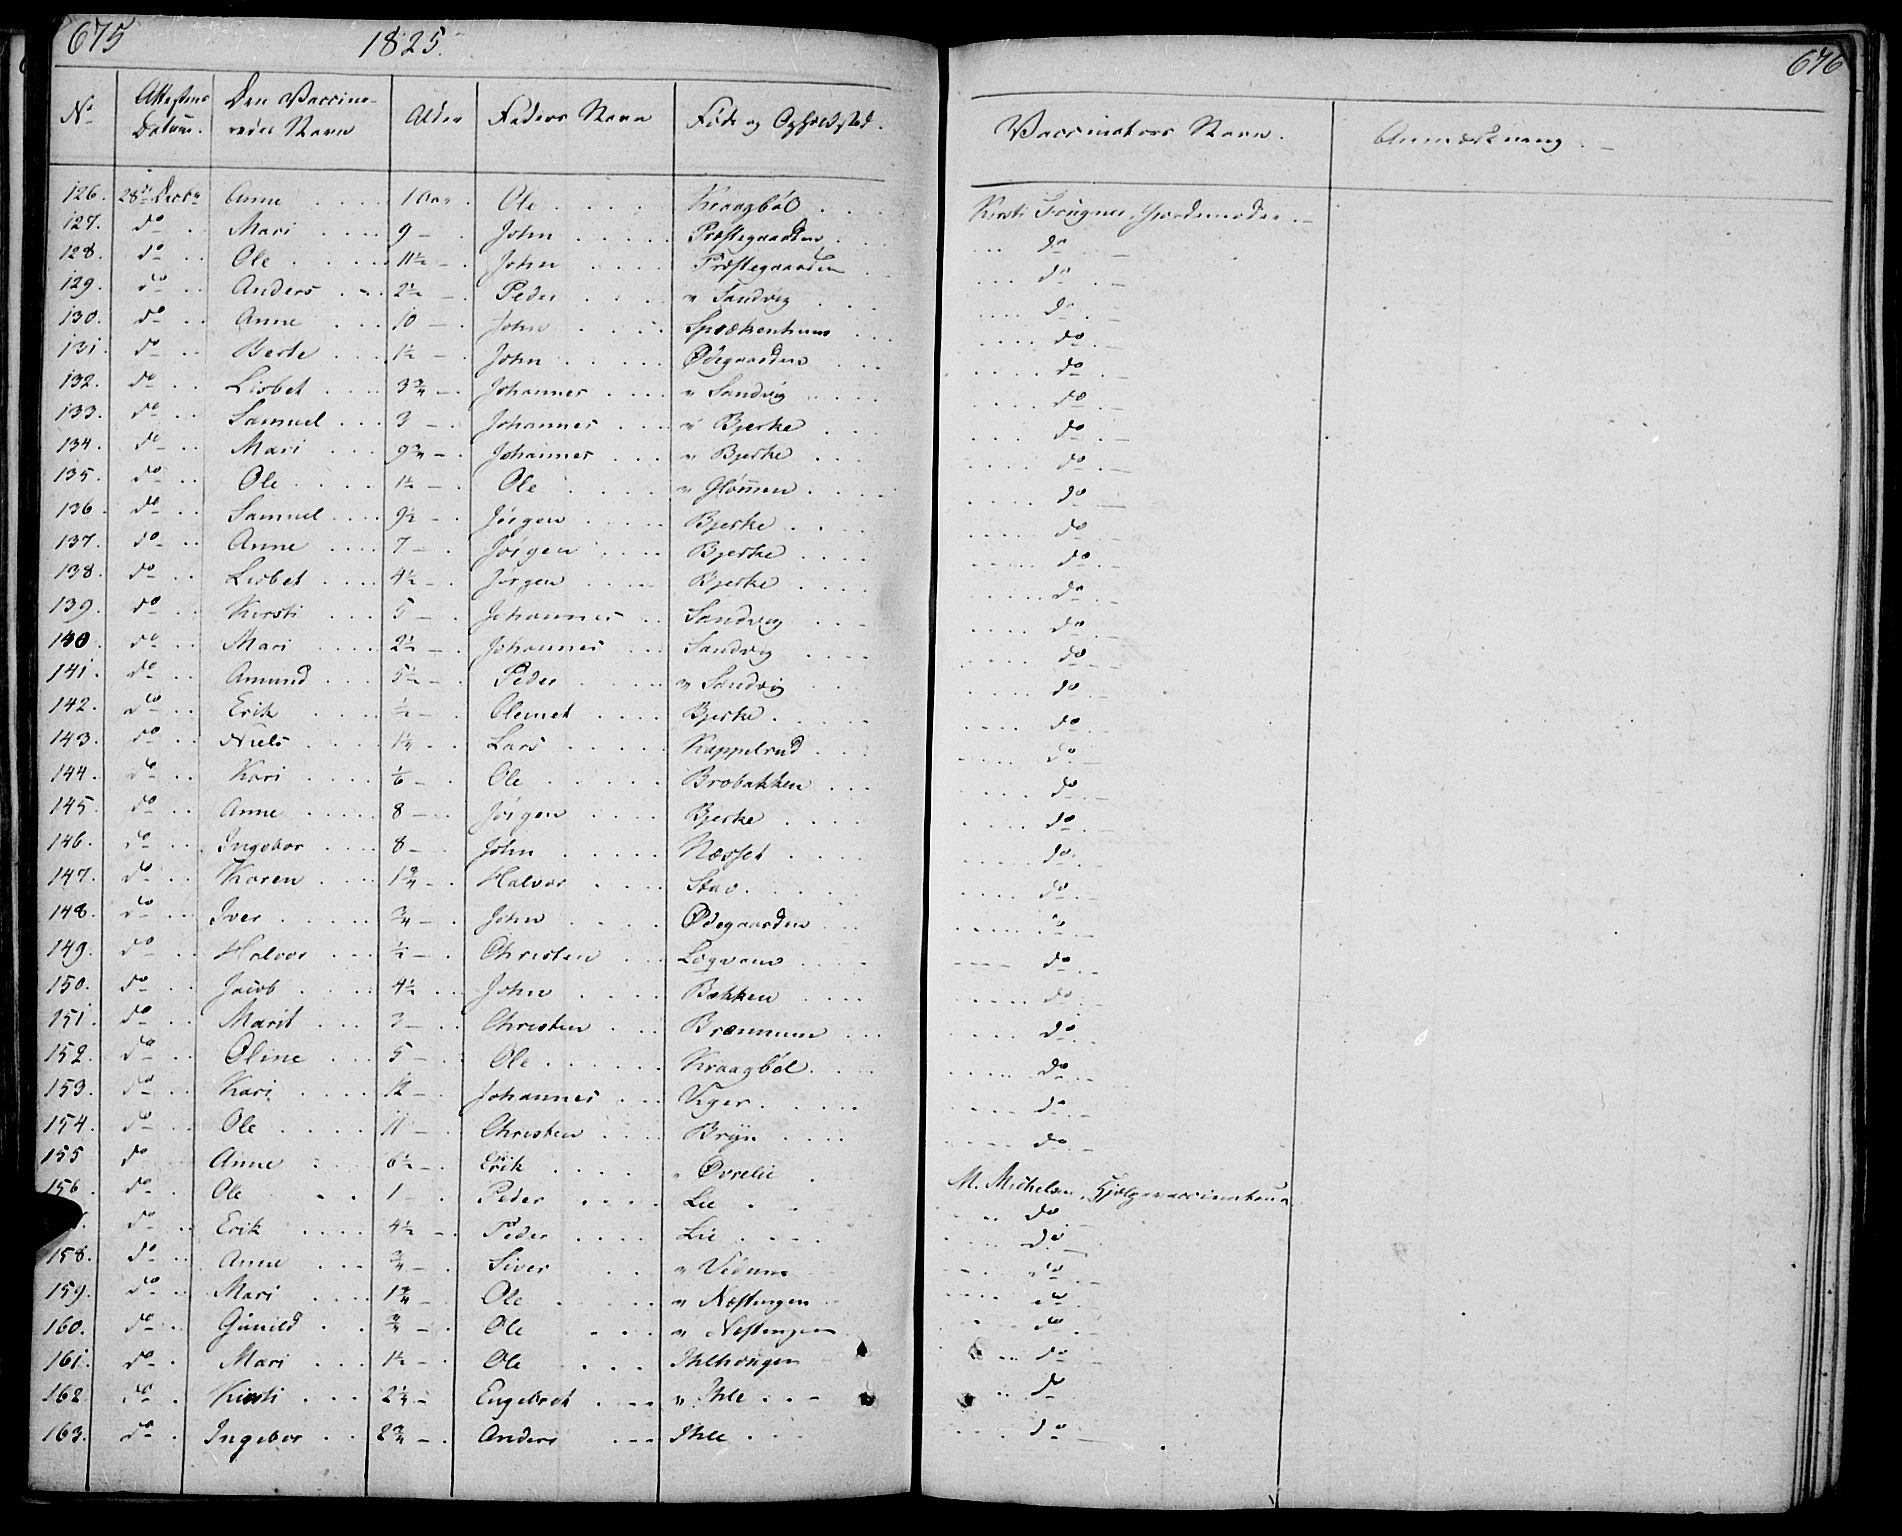 675 1825. 676
No Attestens Datum. Den Vaccineredes Navn Alder Faders Navn Føde og Opholdsted. Vaccinators Navn. Anmærkning.
126. 28de Decbr Anne 1 Aar Ole Kraagbøl Kirsti Frugner, Gjordemoder.
127. do Mari 9 John Præstegaarden do
128. do Ole 11½ John Præstegaarden do
129. do Anders 2½ Peder " Sandvig do
130. do Anne 10 John do
131. do Berte 1½ John Ødegaarden do
132. do Lisbet 3¾ Johannes " Sandvig do
133. do Samuel 3 Johannes " Bjerke do
134. do Mari 9¾ Johannes " Bjerke do
135. do Ole 1½ Ole " Glømmen do
136. do Samuel 9½ Jørgen Bjerke do
137. do Anne 7 Jørgen Bjerke do
138. do Lisbet 4½ Jørgen Bjerke do
139. do Kirsti 5 Johannes Sandvig do
140. do Mari 2½ Johannes Sandvig do
141. do Amund 5½ Peder " Sandvig do
142. do Erik ½ Clemet Bjerke do
143. do Niels 1¼ Lars Kappelrud do
144. do Kari ⅙ Ole Brobakken do
145. do Anne 8 Jørgen Bjerke do
146. do Ingebor 8 John Næsset do
147. do Karen 1¾ Halvor Stav do
148. do Iver ¾ John Ødegaarden do
149. do Halvor ½ Christen do
150. do Jacob 4½ John Bakken do
151. do Marit 3 Christen Brænnum do
152. do Oline 5 Ole Kraagbøl do
153. do Kari 12 Johannes Viger do
154. do Ole 11 Christen Bryn do
155 do Anne 6½ Erik " Øvrelie M. Michelsen, Hjelpevaccinateur
156 do Ole 1 Peder Lie do
do Erik 4½ Peder Lie do
158. do Anne ¾ Siver " Vedum do
159. do Mari 1¾ Ole " Næstengen do
160. do Gunild ¾ Ole " Nestengen do
161. do Mari 1½ Ole Ihlehaugen do
162. do Kirsti 2¼ Engebret " Ihle do
163. do Ingebor 2¾ Anders Ihle do